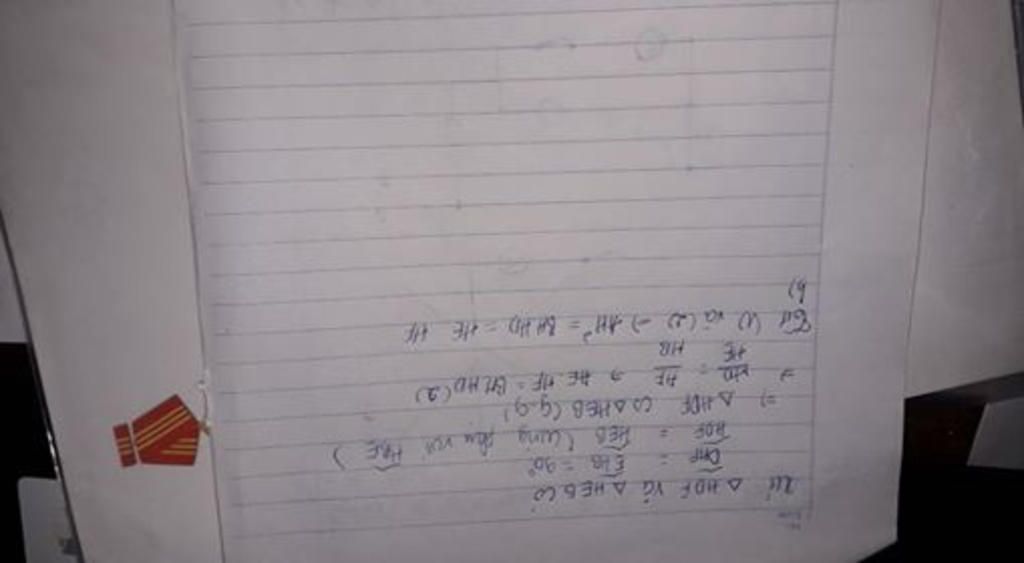 Xét Δ HDF và Δ HEB có
DHF = EHB = 90°
HDF = HEB (cùng phụ với HAE)
=) Δ HDF ∽ Δ HEB (g.g)
=> HD/HE = HF/HB => HE.HF = BH.HD (2)
Từ (1) và (2) =) AH² = BH.HD = HE.HF
b)